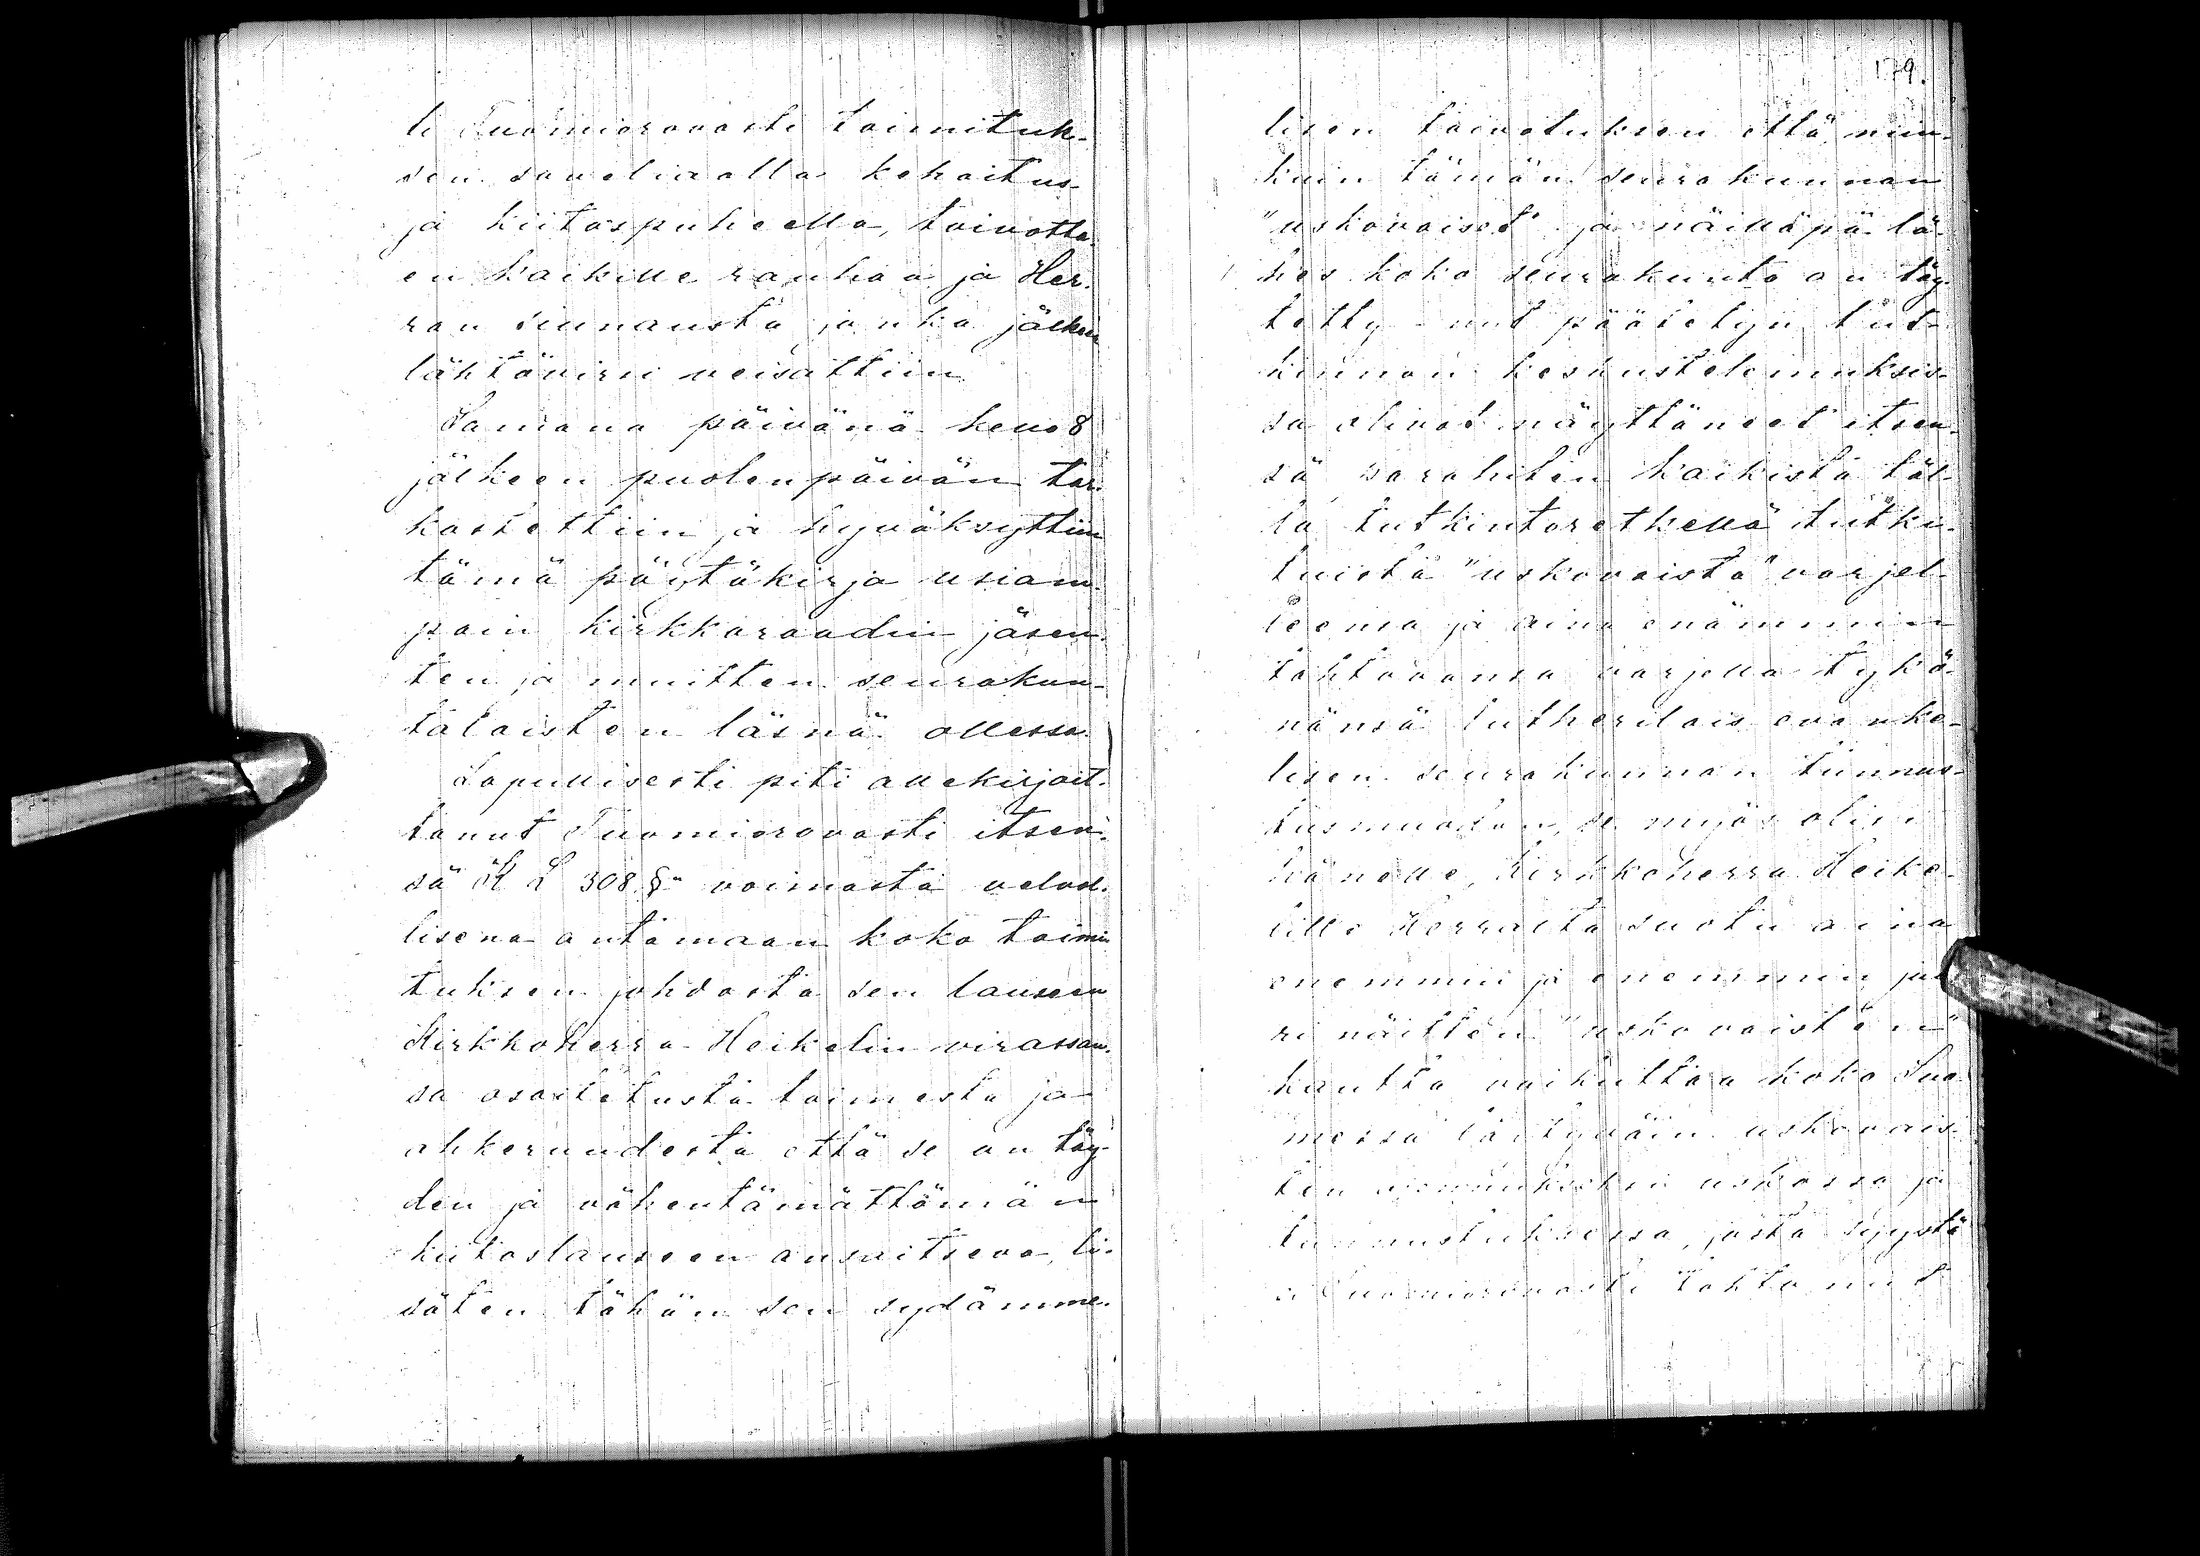 li Tuomiorovasti toimituk-
sen soveliaalla kehoitus-
ja kiitospuheella, toivotta-
en kaikille rauhaa ja Her-
ran siunausta, jonka jälkeen
lähtövirsi veisattiin.
Samana päivänä kello 8
jälkeen puolenpäivän tar-
kastettiin ja hyväksyttiin
tämä pöytäkirja usiam-
pain kirkkoraadin jäsen-
ten ja muitten seurakun-
talaisten läsnä ollessa.
Lopullisesti piti allekirjoit-
tanut Tuomiorovasti itsen-
sä K L 308 § voimasta velvol-
lisena antamaan koko toimi-
tuksen johdosta sen lauseen
Kirkkoherra Heikelin virassan-
sa osoitetusta toimesta ja
ahkeruudesta että se on täy-
den ja vähentämättömän
kiitoslauseen ansaitseva, li-
säten tähän sen sydämme-
179.
lisen toivotuksen että, niin-
kuin tämän seurakunnan
"uskovaiset" ja näillä pä lä-
hes koko seurakunta on täy-
tetty - nut päätetyn tut-
kinnon keskustelemuksis-
sa olivat näyttäneet itsen-
sä parahiten kaikista täl-
lä tutkintoretkellä tutki-
tuista "uskovaista" varjel-
leensa ja aina enämmin
tahtovansa varjella tykö-
nänsä lutherilais evanke-
lisen seurakunnan tunnus-
tusmuodon, se myös olisi
hänelle, Kirkkoherra Heike-
lille Herralta suotu aina
enemmin ja enemmin ju-
ri näitten "uskovaisten"
kautta vaikuttaa koko Suo-
messa löytyväin uskovais-
ten uskossa ja
tunnustuksessa, josta syystä
Tuomiorovasti tahtonut